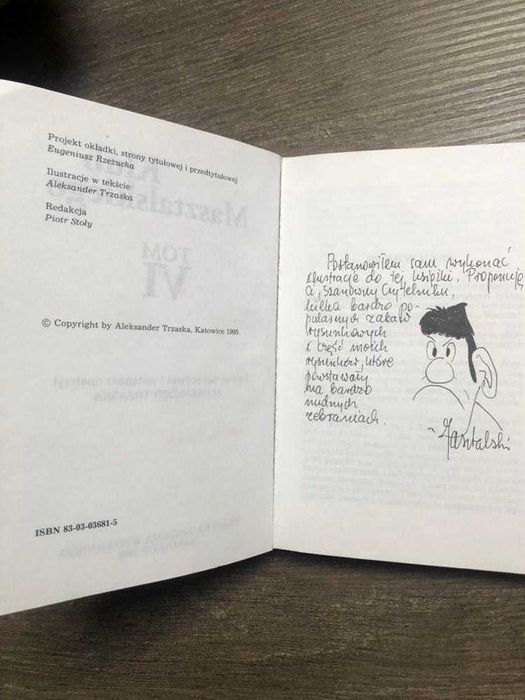 Projekt okładki, strony tytułowej i przedtytułowej
Eugeniusz Rzeżucha
Ilustracje w tekście
Aleksander Trzaska
Redakcja
Piotr Stoły
Masztalskiego
TOM
VI
© Copyright by Aleksander Trzaska, Katowice 1995
ISBN 83-03-03681-5
Postanowiłem sam wykonać
ilustracje do tej książki. Proponuję
Ci, Szanowny Czytelniku,
kilka bardzo po-
pularnych zabaw
rysunkowych
i część moich
rysunków, które
powstawały
na bardzo
nudnych
zebraniach.
Masztalski